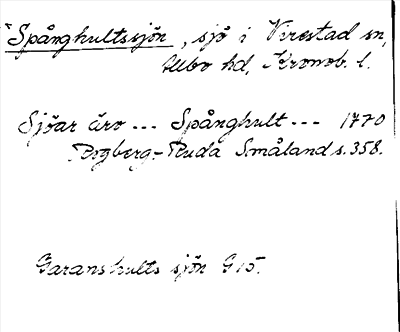 *Spånghultssjön, sjö i Virestad sn,
Allbo hd, Kronob. l.
Sjöar äro --- Spånghult --- 1770
Rogberg-Ruda Småland s. 358.
Garanshults sjön G15.